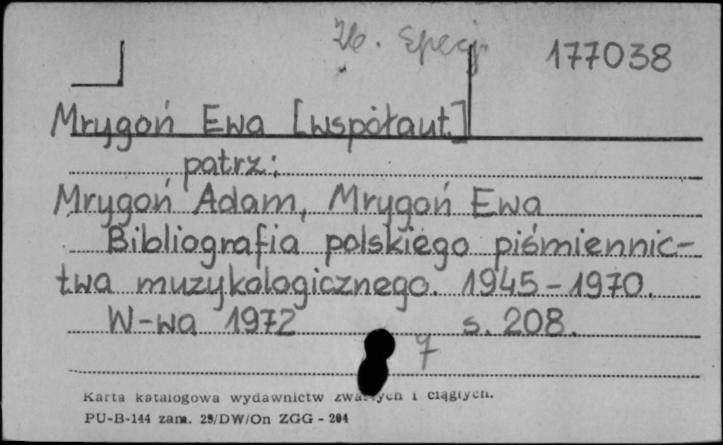 Zb. Specj.
177038
Mrygoń Ewa [współaut.]
patrz:
Mrygoń Adam, Mrygoń Ewa
Bibliografia polskiego piśmiennic-
twa muzykologicznego. 1945-1970.
W-wa 1972 s. 208.
7
Karta katalogowa wydawnictw zwartych i ciągłych.
PU-B-144 zam. 29/DW/On ZGG - 204